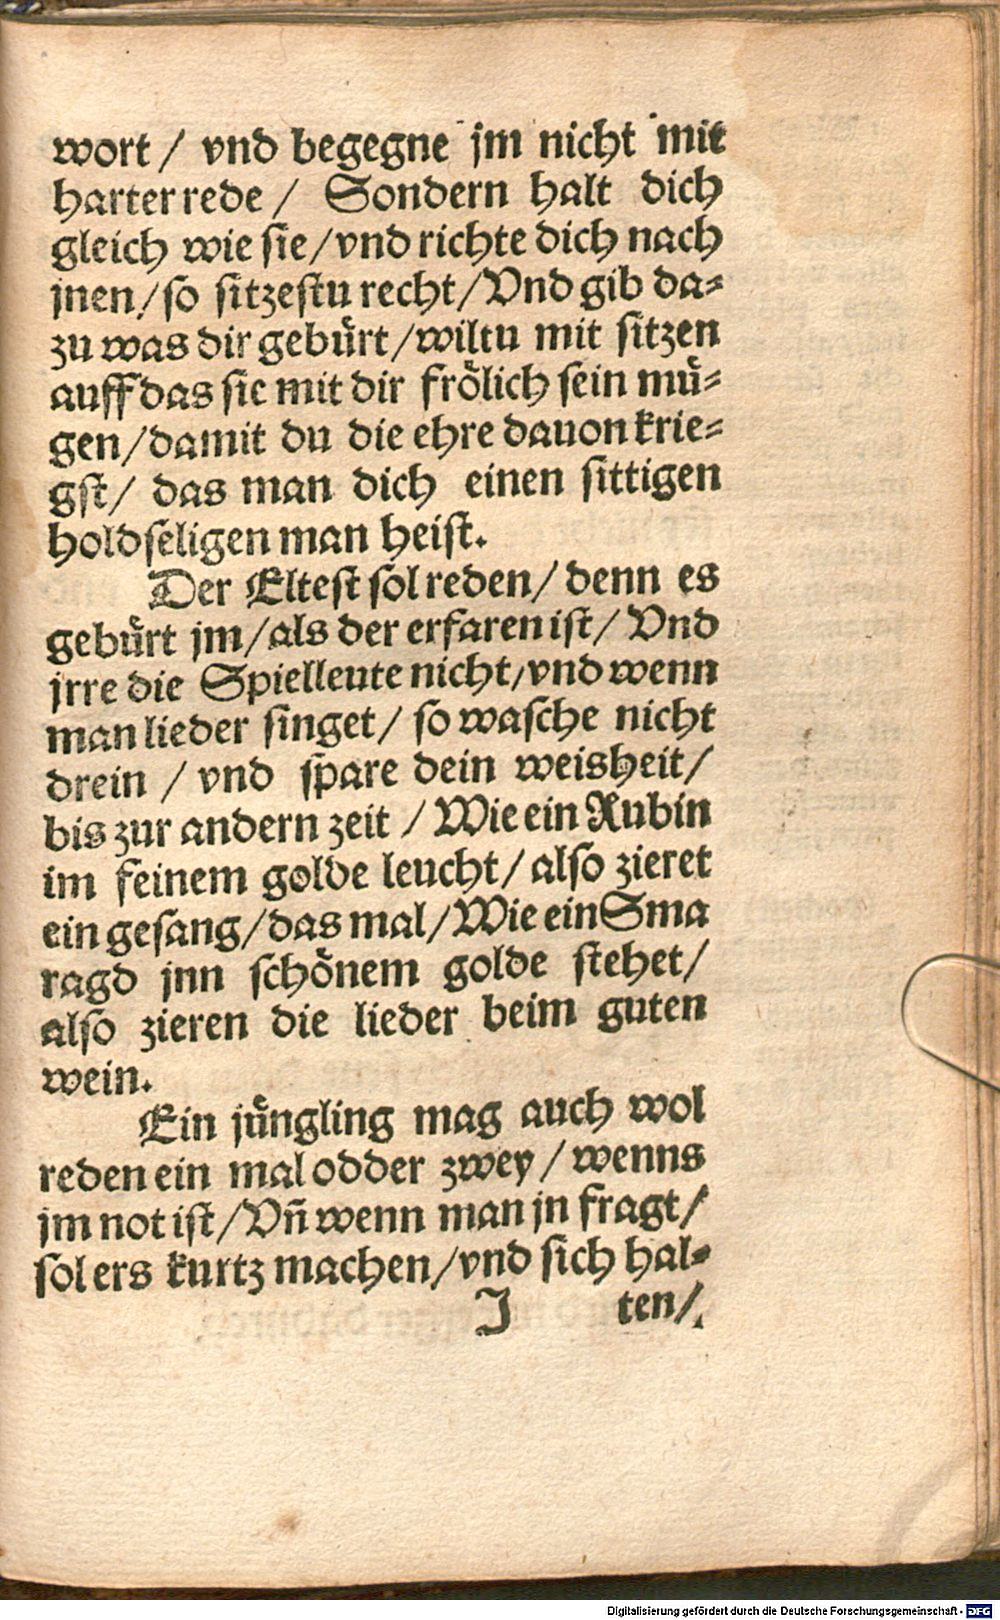 wort / vnd begegne jm nicht mit
harter rede / Sondern halt dich
gleich wie sie / vnd richte dich nach
jnen / so sitzestu recht / Vnd gib da-
zu was dir gebürt / wiltu mit sitzen
auff das sie mit dir frölich sein mü-
gen / damit du die ehre dauon krie-
gst / das man dich einen sittigen
holdseligen man heist.
Der Eltest sol reden / denn es
gebürt jm / als der erfaren ist / Vnd
jrre die Spielleute nicht / vnd wenn
man lieder singet / so wasche nicht
drein / vnd spare dein weisheit /
bis zur andern zeit / Wie ein Rubin
im feinem golde leucht / also zieret
ein gesang / das mal / Wie ein Sma
ragd jnn schönem golde stehet /
also zieren die lieder beim guten
wein.
Ein jüngling mag auch wol
reden ein mal odder zwey / wenns
jm not ist / Vñ wenn man jn fragt /
sol ers kurtz machen / vnd sich hal-
J ten /
Digitalisierung gefördert durch die Deutsche Forschungsgemeinschaft - DFG